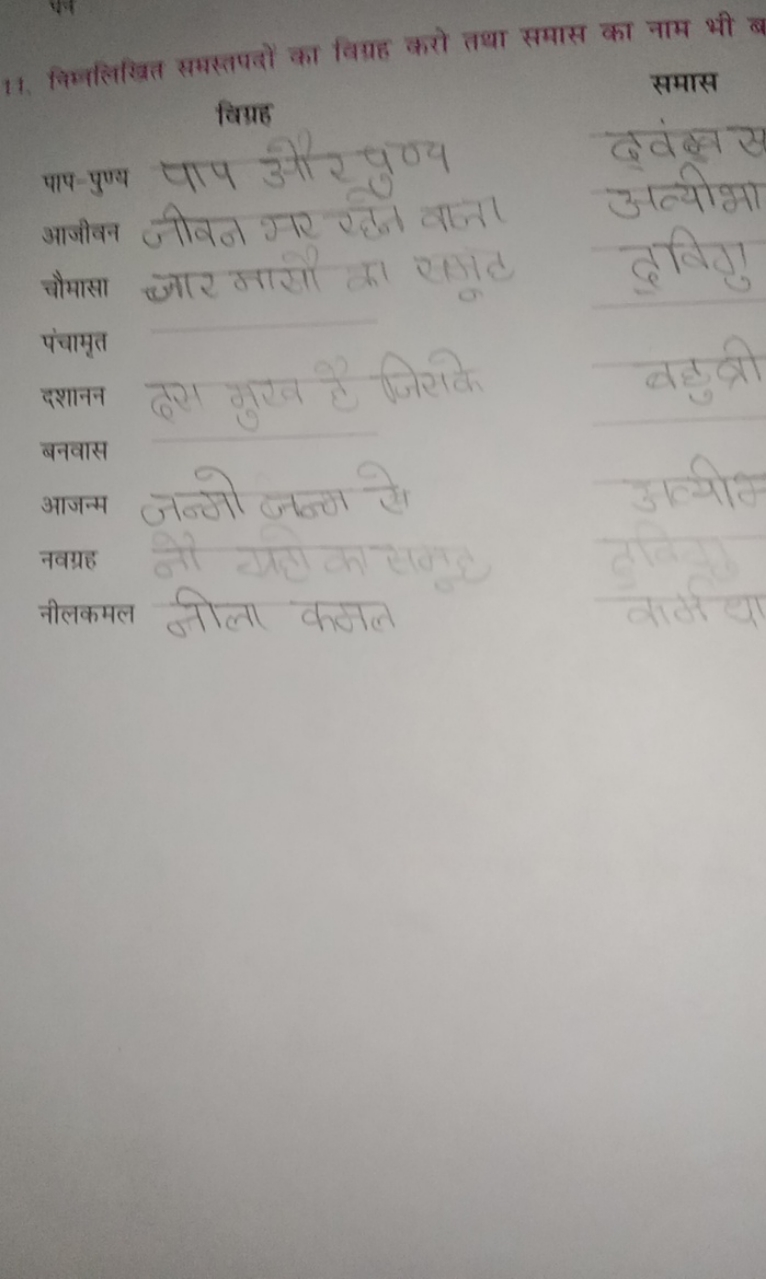 11. निम्नलिखित समस्तपदों का विग्रह करो तथा समास का नाम भी ब
विग्रह समास
पाप-पुण्य पाप और पुण्य द्वंद्व स
आजीवन जीवन भर रहने वाला अव्यीभा
चौमासा चार मासों का समूह द्विगु
पंचामृत
दशानन दस मुख है जिसके बहुव्री
बनवास
आजन्म जन्मो जन्म से अव्यीभ
नवग्रह नौ ग्रहों का समूह द्विगु
नीलकमल नीला कमल कर्मधा